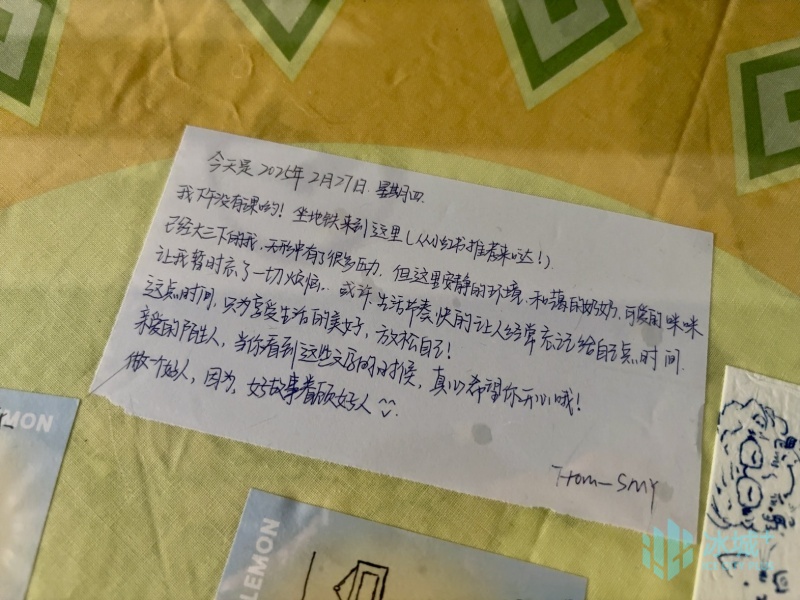 今天是2025年2月27日.星期四.
我下午没有课哟！坐地铁来到这里(从小红书推荐来哒！).
已经大三下的我,无形中有了很多压力,但这里安静的环境,和蔼的奶奶,可爱的咪咪
让我暂时忘了一切烦恼.或许,生活节奏快的让人经常忘记给自己点时间.
这点时间,只为享受生活的美好,放松自己!
亲爱的陌生人,当你看到这些文字的时候,真心希望你开心哦!
做个好人,因为,好故事眷顾好人
From—SMY
LEMON
LEMON
冰城+